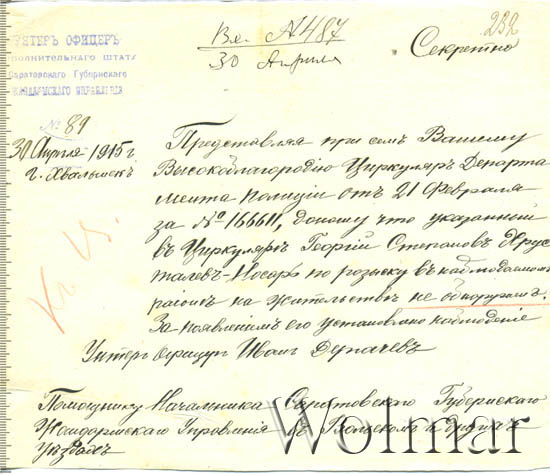 УНТЕРЪ ОФИЦЕРЪ
ДОПОЛНИТЕЛЬНАГО ШТАТА
Саратовскаго Губернскаго
ЖАНДАРМСКАГО УПРАВЛЕНІЯ
№ 89
30 Апреля 1915 г.
г. Хвалынскъ
Вх. № 487
30 Апреля
232
Секретно
Представляя при семъ Вашему
Высокоблагородію Циркуляръ Департа
мента Полиціи отъ 21 Февраля
за № 166611, доношу что указанный
въ Циркуляре Георгій Степановъ Хрус
талевъ-Носарь по розыску въ наблюдаемомъ
районе на жительстве не обнаруженъ.
За появленіемъ его установлено наблюденіе
Унтеръ Офицеръ Иванъ
Помощнику Начальника Саратовскаго Губернскаго
Жандармскаго Управленія въ Вольскомъ и другихъ
Уездахъ
Wolmar